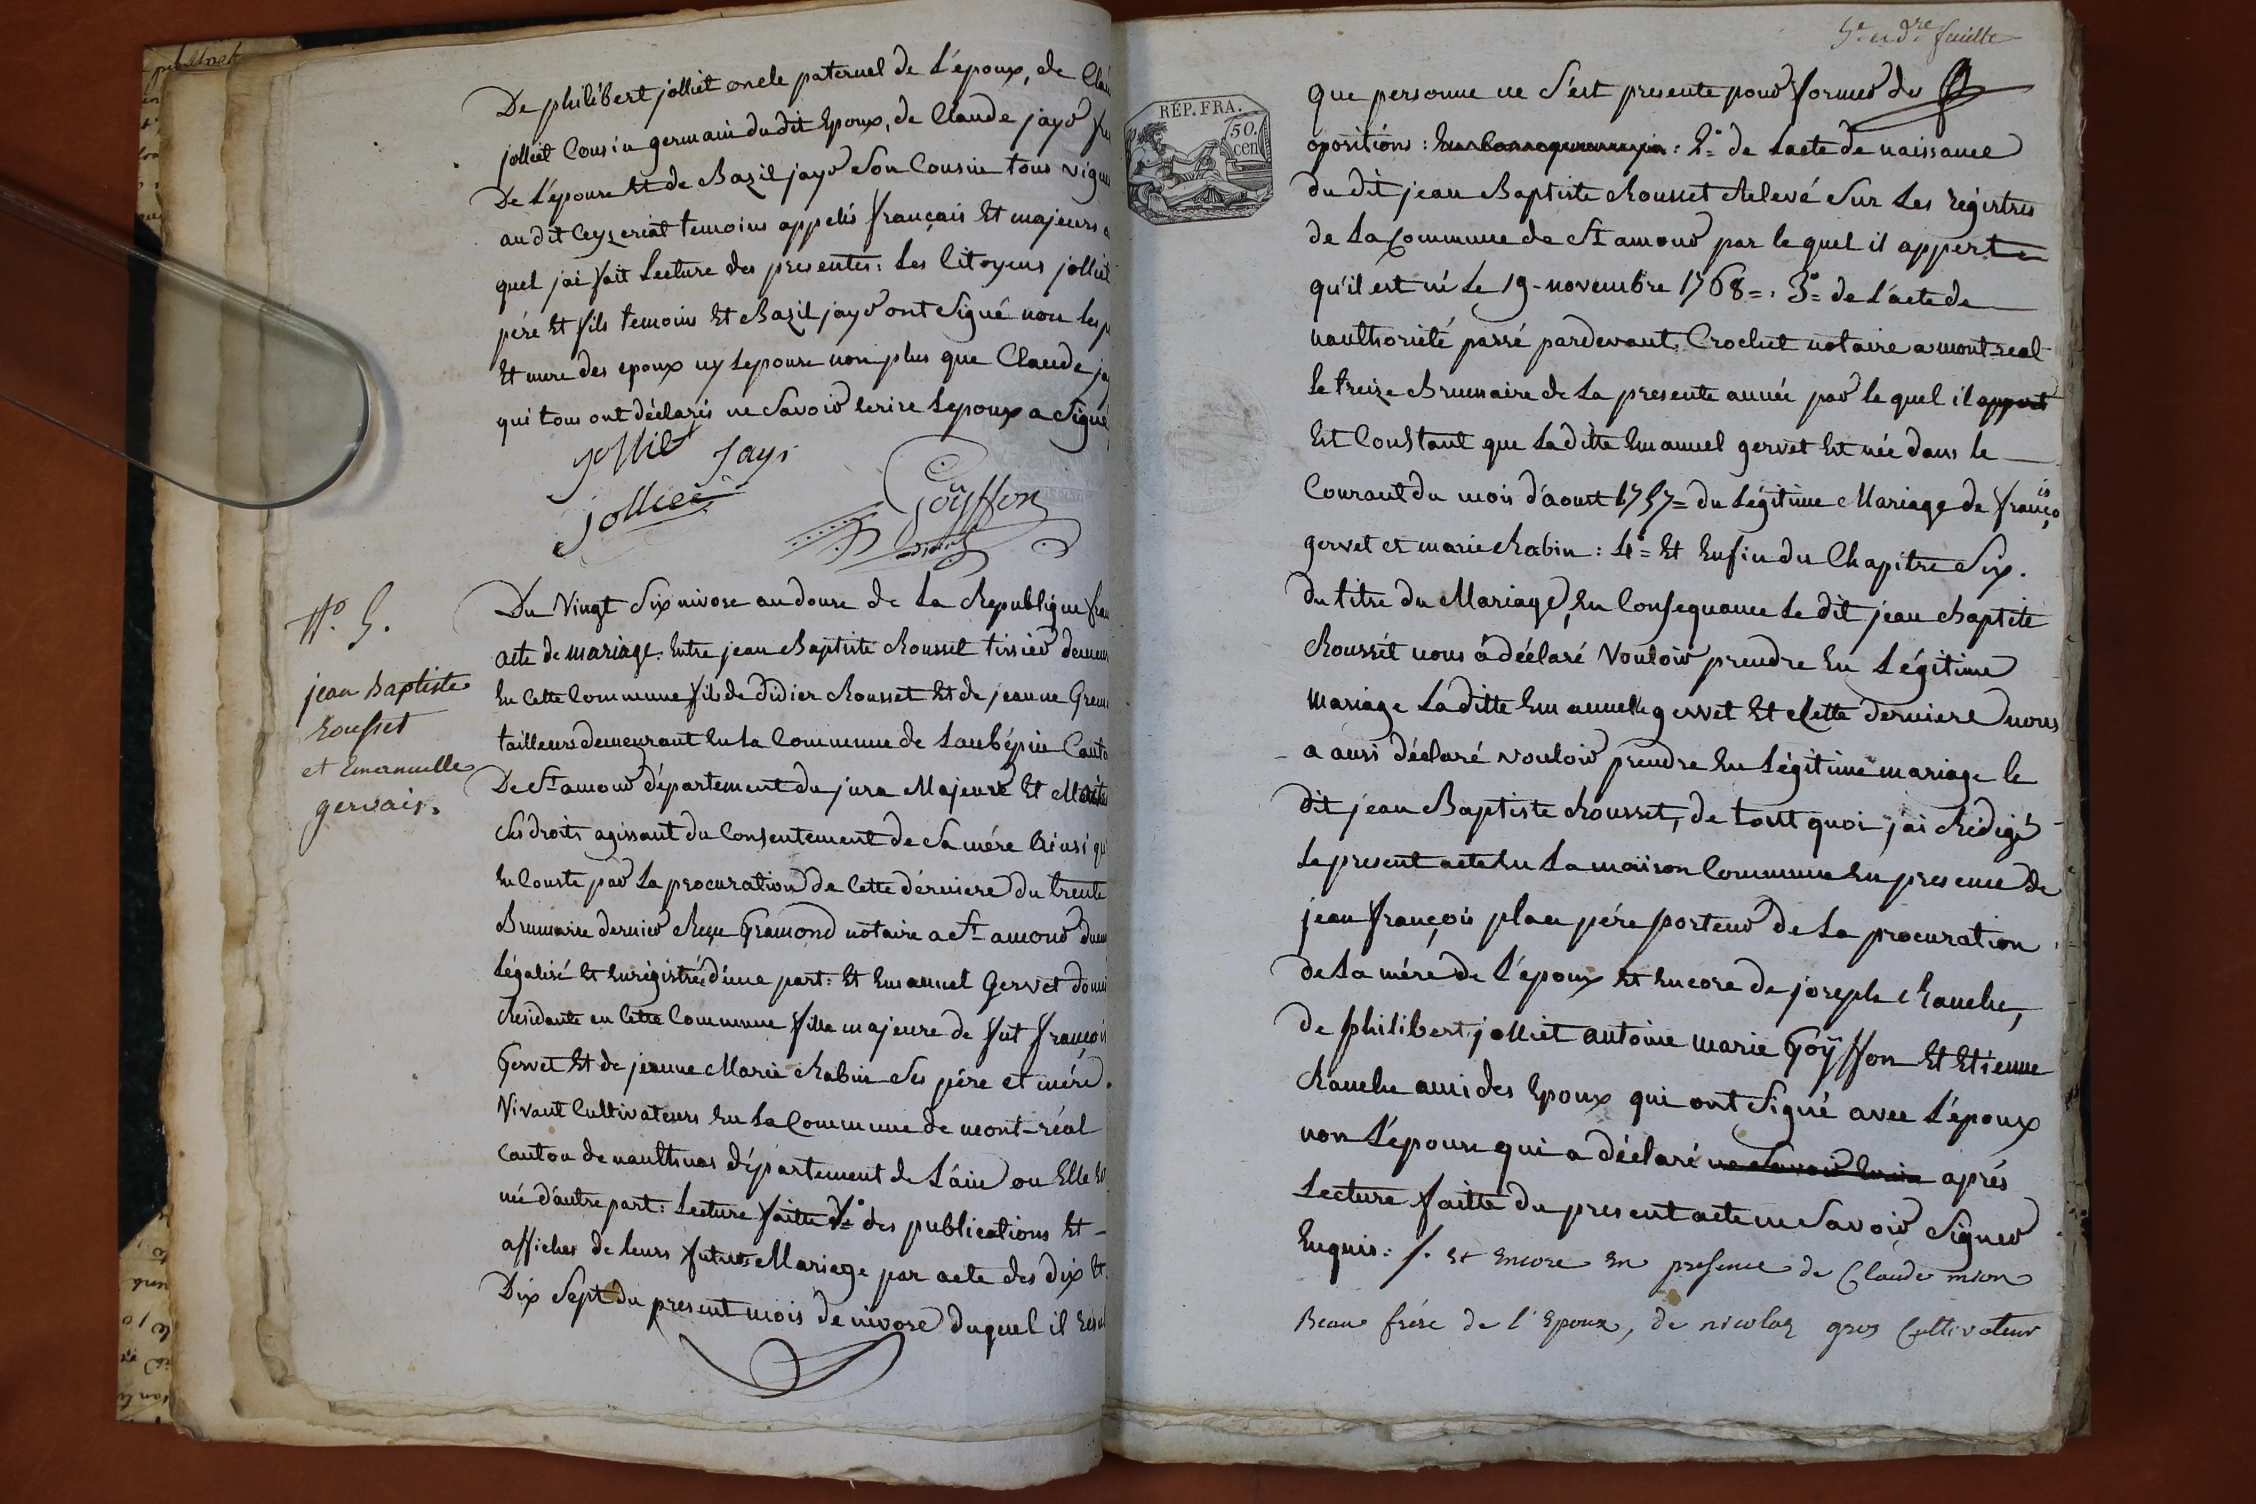 De philibert jolliet oncle paternel de L'époux, de
jolliet Cousin germain du dit Epoux, de Claude jayr
De L'épouse Et de Bazil jayr Son Cousin tous
au dit Ceyzeriat temoins appelés français Et majeurs
quel jai fait Lecture des presentes: Les Citoyens jolliet
pére Et fils temoins Et Bazil jayr ont Signé non les
Et mere des epoux ny Lepouse non plus que Claude
qui tous ont déclarés ne Savoir Ecrire Lepoux a Signé
jolliet jayr
jolliet
Goÿffon
N.º 5.
jean Baptiste
Rousset
et Emanuelle
gervais.
Du Vingt Six nivose an douze de La Republique
acte de mariage. Entre jean Baptiste Rousset tissier
En Cette Commune fils de Didier Rousset Et de jeanne
tailleurs demeurant En La Commune de Laubépin
De St. amour département du jura Majeur Et
Ses droits agissant du Consentement de Sa mére Ainsi
En Conste par La procuration de Cette dérniere du trente
Brumaire dernier Reçu Gramond notaire a St. amour
Légalisé Et Enrégistrée d'une part: Et Emanuel Gervet
Residante en Cette Commune fille majeure de fut françois
Gervet Et de jeanne Marie Rabin Ses pére et mére.
Vivant Cultivateurs En La Commune de mont-réal
Canton de nanthuas département de L'ain ou Elle
né d'autre part: Lecture faitte 1º. des publications Et
affiches de leurs futurs Mariage par acte des dix Et
Dix Sept du present mois de nivose duquel il
feuille
RÉP. FRA.
50.
cen
que personne ne S'est presenté pour former des
opositions: 2.º de Lacte de naissance
du dit jean Baptiste Rousset Relevé Sur Les régistres
de La Commune de St. amour par le quel il appert
qu'il est né Le 19 novembre 1768 =. 3.º de L'acte de
nauthoriété passé pardevant Crochet notaire a mont-réal
le treize Brumaire de La presente année par le quel il appert
Est Constant que Laditte Emanuel gervet Est née dans le
Courant du mois d'aoust 1757 = du Légitime Mariage de françois
gervet et marie Rabin: 4.º Et Enfin du Chapitre Six.
Du titre du Mariage, En Consequance Le dit jean Baptiste
Roussét nous à déclaré Vouloir prendre En Légitime
Mariage Laditte Emanuelle gervet Et Cette derniere nous
a aussi déclaré vouloir prendre En Légitime mariage le
dit jean Baptiste Rousset, de tout quoi j'ai Rédigé
Le present acte En La maison Commune En presence de
jean françois pére porteur de La procuration
de La mére de L'époux Et Encore de joseph
de philibert jolliet antoine marie Goÿffon Et Etienne
ami des Epoux qui ont Signé avec L'époux
non L'épouse qui a déclaré ne Savoir Ecrire aprés
Lecture faitte du present acte ne Savoir Signer
Enquis: /. Et Encore En presence de Claude mion
Beau frére de l'Epoux, de nicolas gros Cultivateur